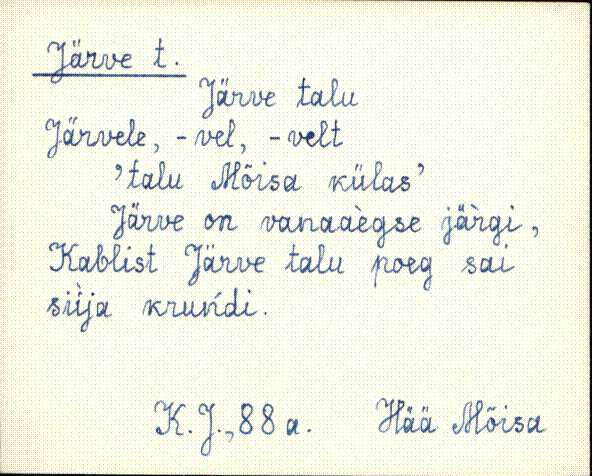 Järve t.
Järve talu
Järvele, -vel, -velt
'talu Mõisa külas'
Järve on vanaaègse jäŕgi,
Kablist Järve talu poeg sai
siìja kruńdi.
K.J., 88 a. Hää Mõisa